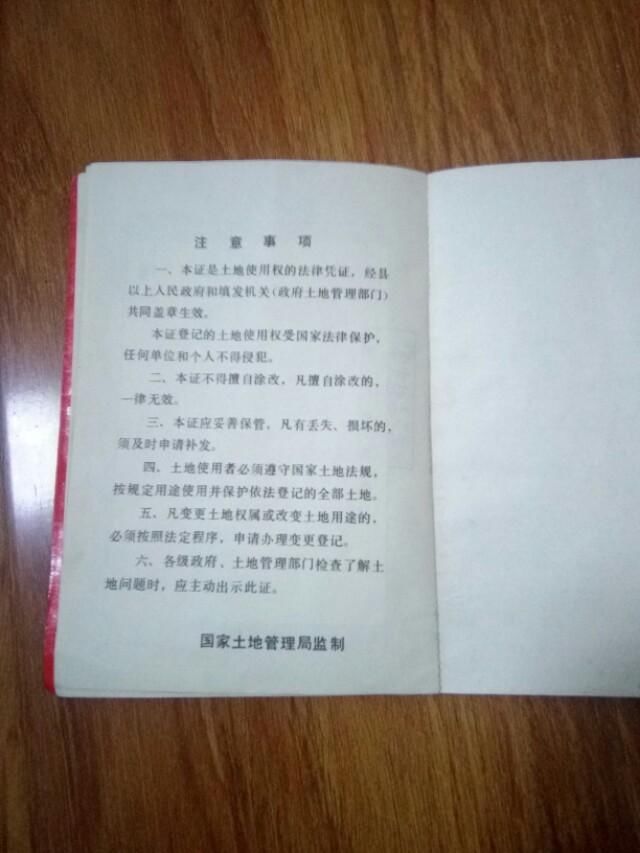 注意事项
一、本证是土地使用权的法律凭证，经县
以上人民政府和填发机关（政府土地管理部门）
共同盖章生效。
本证登记的土地使用权受国家法律保护，
任何单位和个人不得侵犯。
二、本证不得擅自涂改，凡擅自涂改的，
一律无效。
三、本证应妥善保管，凡有丢失、损坏的，
须及时申请补发。
四、土地使用者必须遵守国家土地法规，
按规定用途使用并保护依法登记的全部土地。
五、凡变更土地权属或改变土地用途的，
必须按照法定程序，申请办理变更登记。
六、各级政府、土地管理部门检查了解土
地问题时，应主动出示此证。
国家土地管理局监制